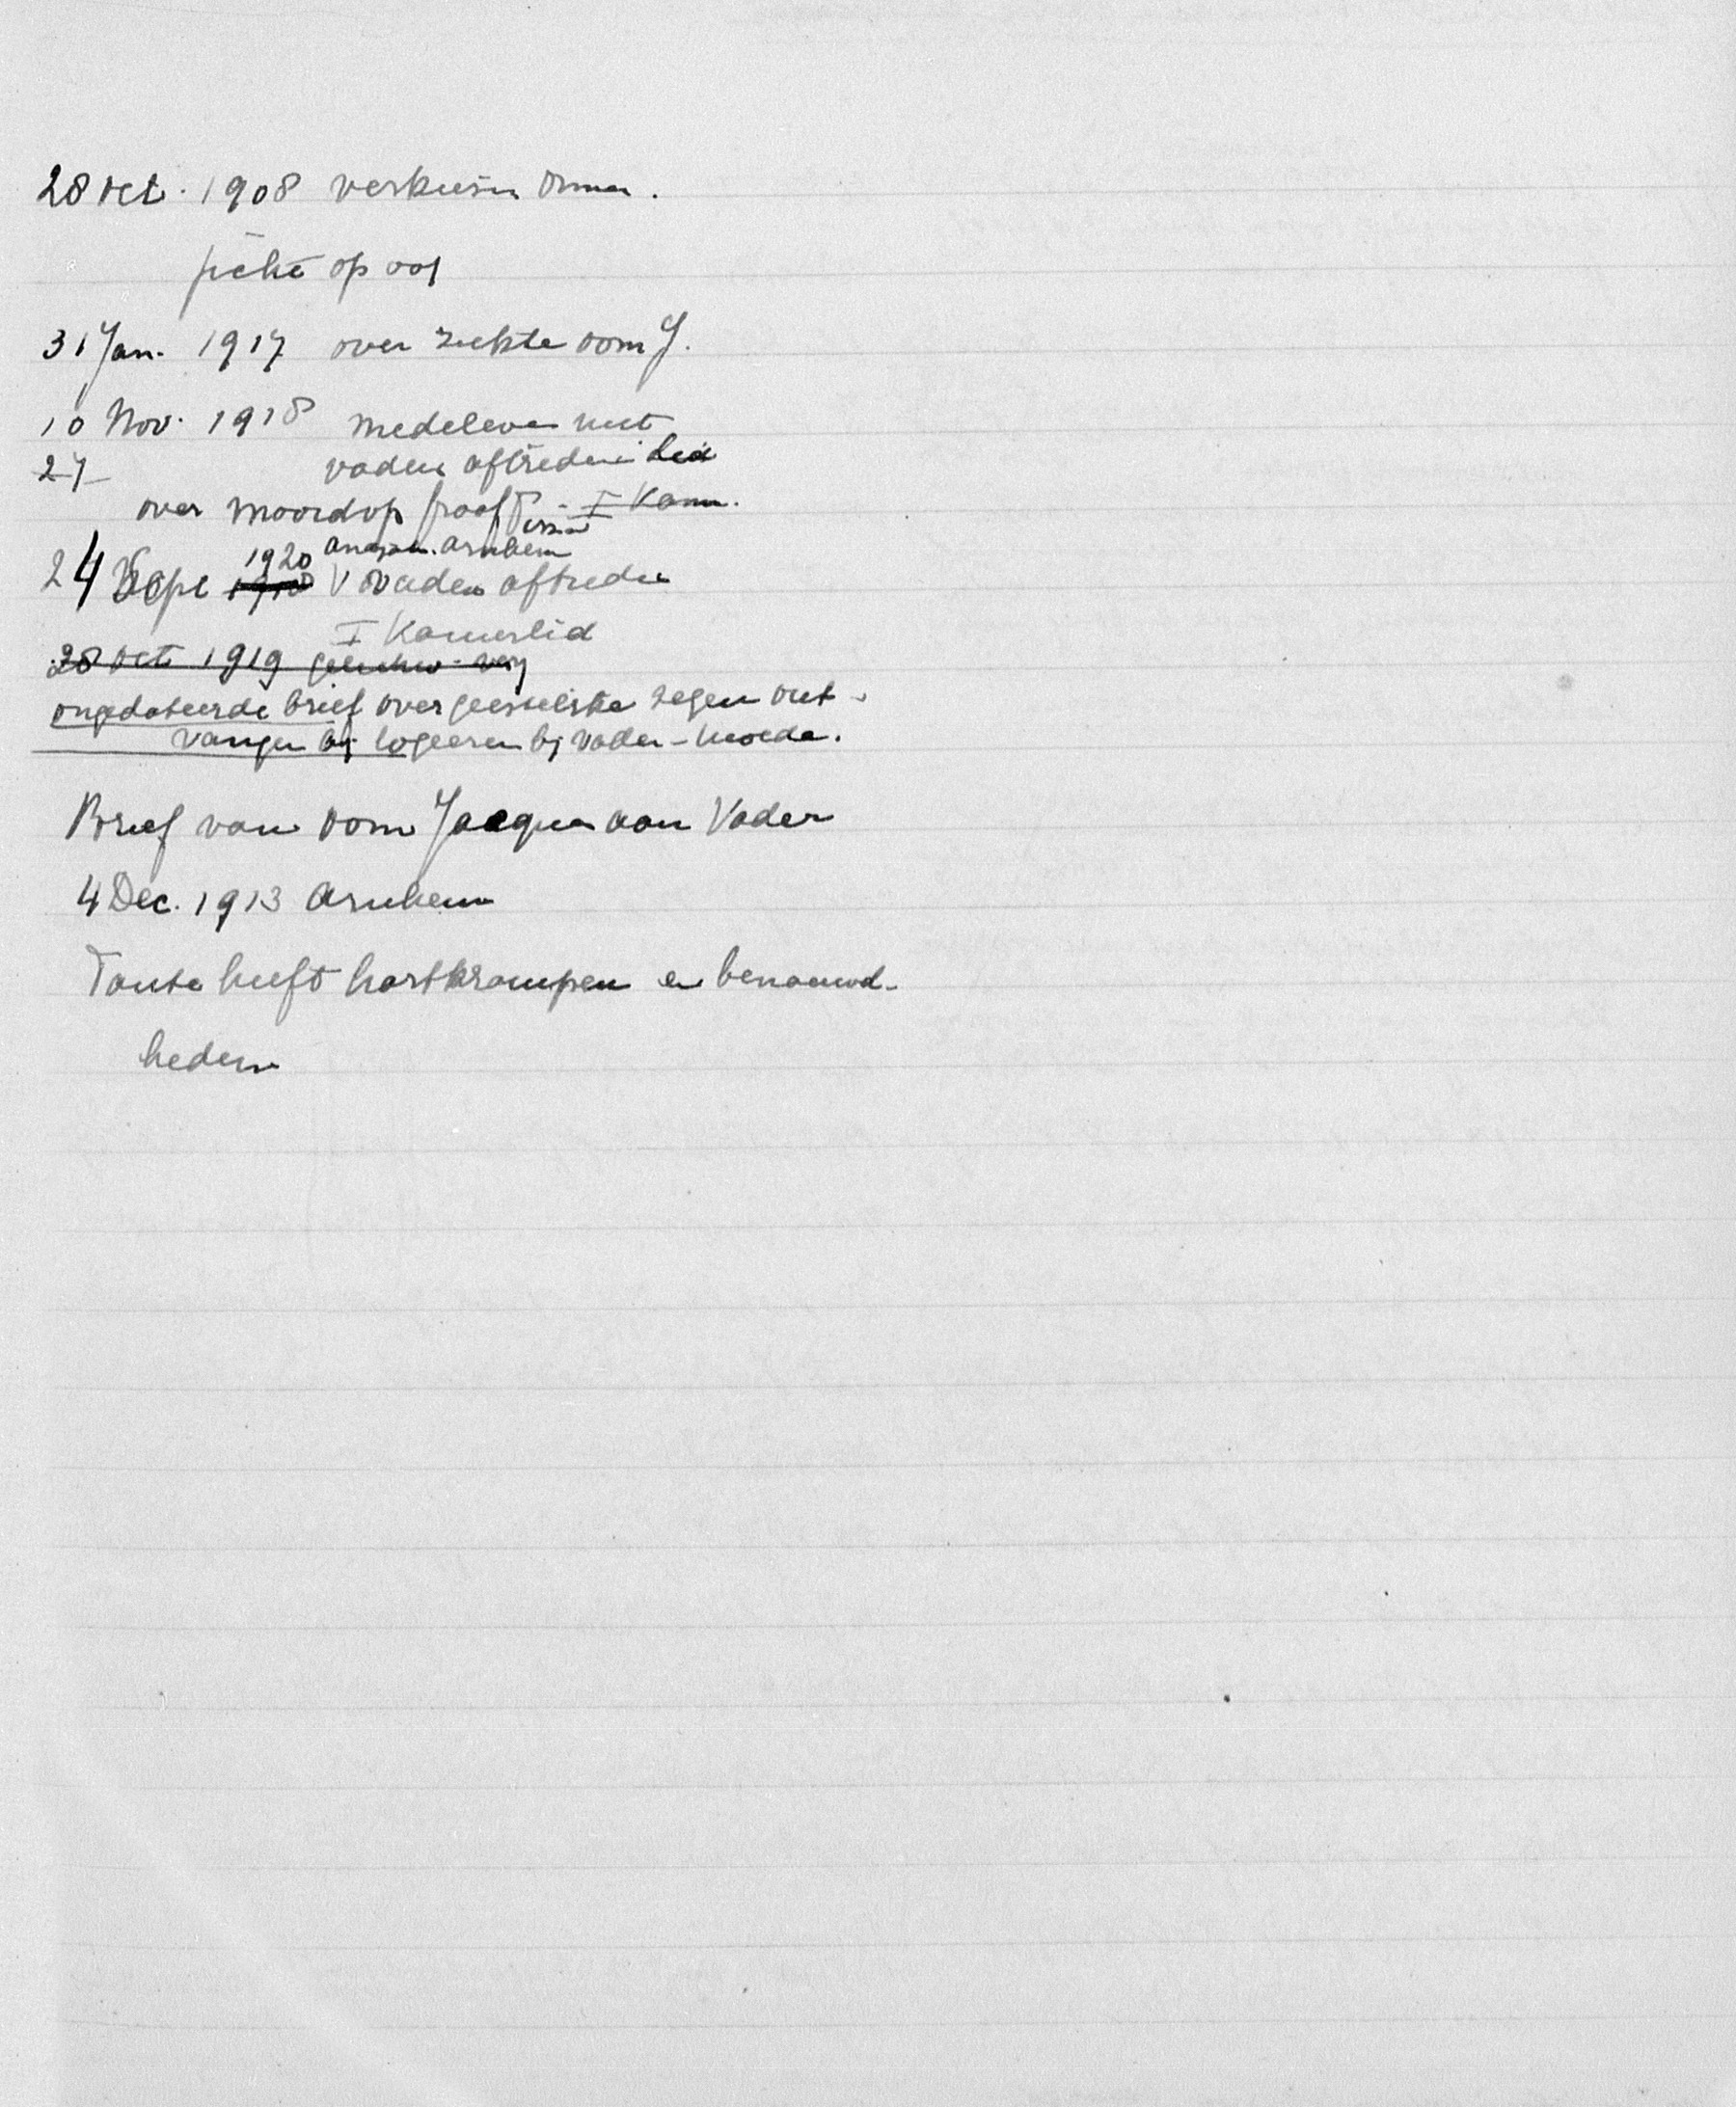 28 Oct. 1908 verkiezen Omm.
fiche op oog
31 Jan. 1917 over ziekte oom J.
10 Nov. 1918 medeleven met
27 vaders aftreden lid
over moord op graaf Tisza I Kam.
Arnhem
24 Sept 1920 1910 Vaders aftreden
I Kamerlid
28 Oct 1919
ongedateerde brief over geestelijke zegen ont-
vangen bij logeeren bij Vader-Moeder.
Brief van oom Jacques aan Vader
4 Dec. 1913 Arnhem
Tante heeft hartkrampen en benauwd-
heden